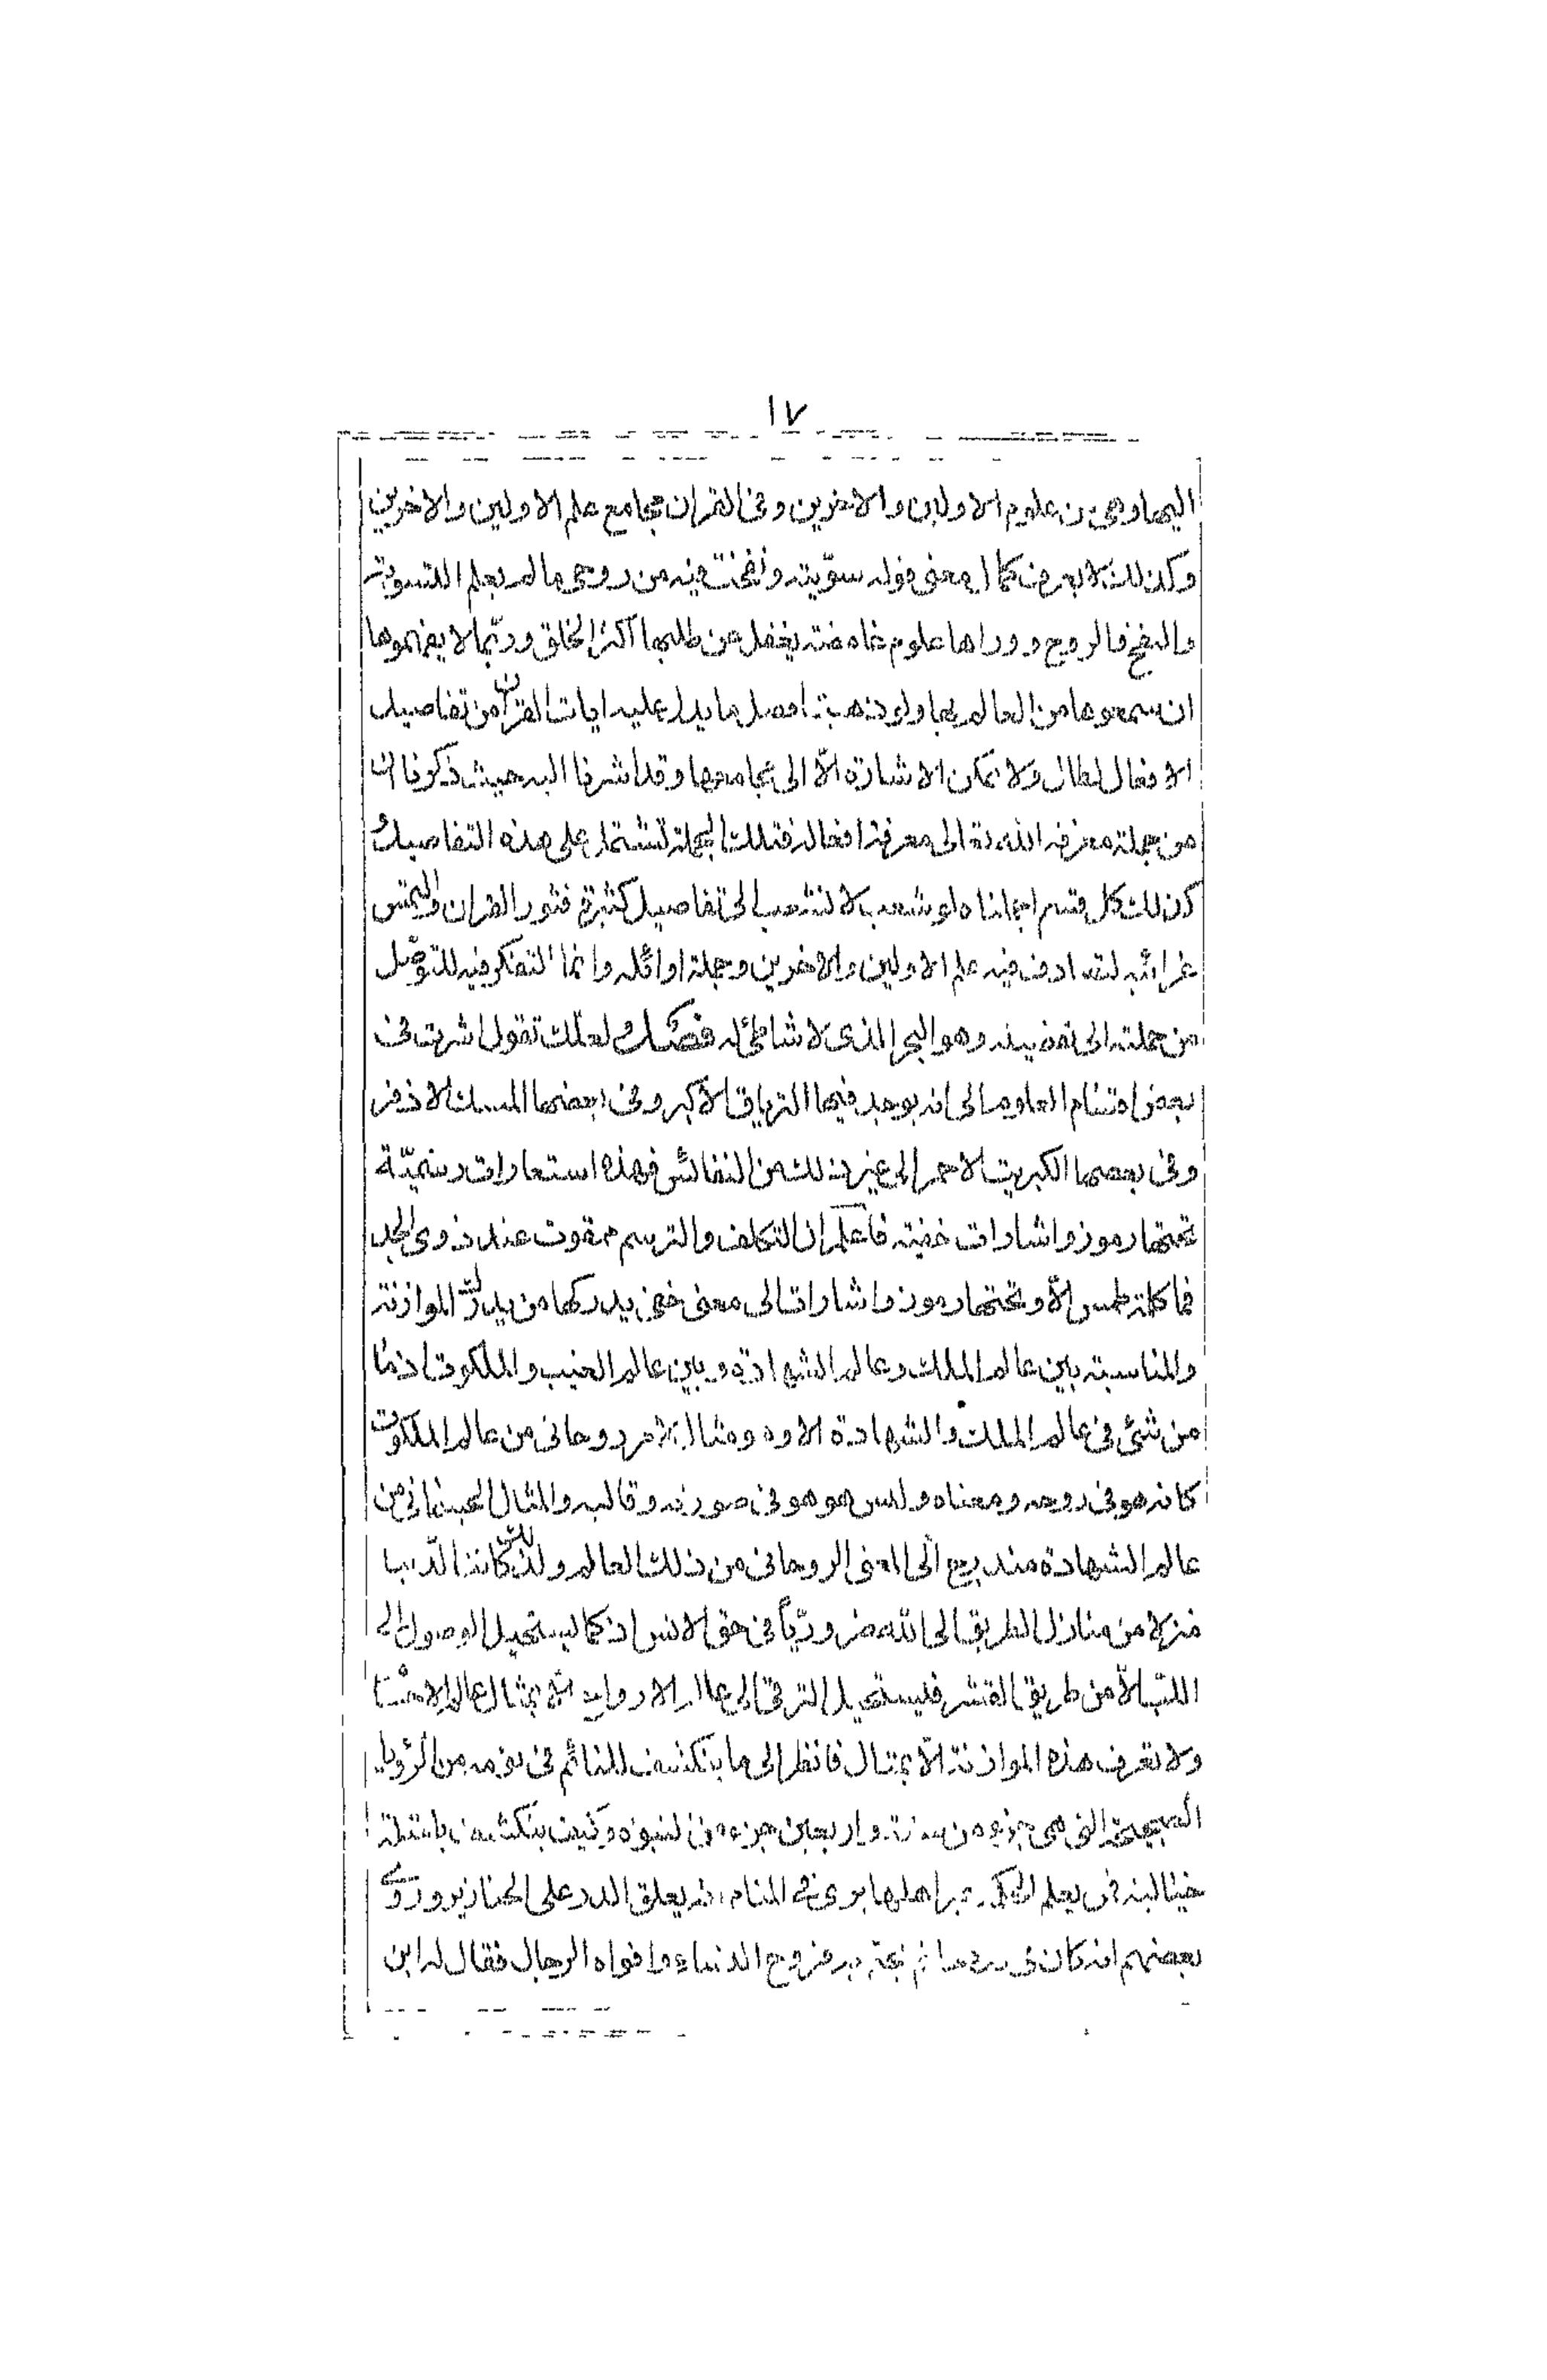 ١٧
اليها وهى من علوم الاولين والاخرين وفى القران مجامع علم الاولين والاخرين
وكذلك لا يعرف كمال معنى قوله سوّيته ونفخت فيه من روحى ما لم يعلم التسوية
والنفخ والروح ووراها علوم غامضة يغفل عن طلبها اكثر الخلق وربّما لا يفهموها
ان سمعوها من العالم بها ولو ذهبت افصل ما يدل عليه ايات القران من تفاصيل
الافعال لطال ولا يمكن الاشارة الّا الى مجامعها وقد اشرنا اليه حيث ذكرنا ان
من جملة معرفة الله تعالى معرفة افعاله فتلك الجملة تشتمل على هذه التفاصيل و
كذلك كل قسم اجملناه لو شعب لانشعب الى تفاصيل كثيرة فثور القران والتمس
غرائبه لتصادف فيه علم الاولين والاخرين وجملة اوائله وانما التفكر فيه للتوصّل
من جملته الى تفصيله وهو البحر الذى لا شاطئ له فصل ولعلّك تقول اشرت فى
بعض اقسام العلوم الى انه يوجد فيها الترياق الاكبر وفى بعضها المسك الاذفر
وفى بعضها الكبريت الاحمر الى غير ذلك من النفائس فهذه استعارات رسميّة
تحتها رموز واشارات خفية فاعلم ان التكلف والترسم ممقوت عند ذوى الجد
فما كلمة طمس الّا وتحتها رموز واشارات الى معنى خفى يدركها من يدرك الموازنة
والمناسبة بين عالم الملك وعالم الشهادة وبين عالم الغيب والملكوت اذ ما
من شئ فى عالم الملك والشهادة الا وهو مثال لامر روحانى من عالم الملكوت
كانه هو فى روحه ومعناه وليس هو هو فى صورته وقالبه والمثال الجسمانى من
عالم الشهادة مندرج الى المعنى الروحانى من ذلك العالم ولذلك كانت الدنيا
منزلا من منازل الطريق الى الله ضروريّاً فى حق الانس اذ كما يستحيل الوصول الى
اللب الّا من طريق القشر فيستحيل الترقى الى عالم الارواح الا بمثال عالم الاجسام
ولا تعرف هذه الموازنة الّا بمثال فانظر الى ما ينكشف للنائم فى نومه من الرؤيا
الصحيحة التى هى جزء من ستة واربعين جزء من النبوة وكيف ينكشف بامثلة
خيالية فمن يعلم الحكمة غير اهلها يرى فى المنام انه يعلق الدر على الخنازير وراى
بعضهم انه كان فى يده خاتم يختم به فروج النساء وافواه الرجال فقال له ابن